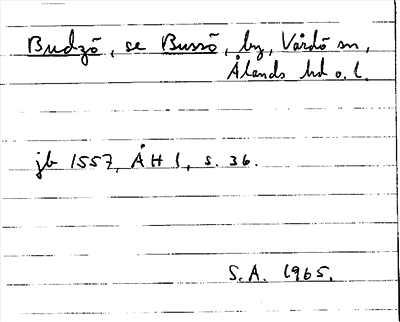 Budzö, se Bussö, by, Vårdö sn,
Ålands hd o. l.
jb 1557, ÅH 1, s. 36.
S.A. 1965.